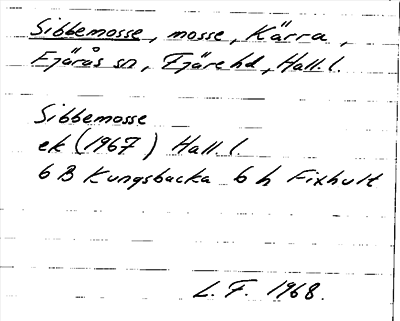 Sibbemosse, mosse, Kärra,
Fjärås sn, Fjäre hd, Hall. l.
Sibbemosse
ek (1967) Hall. l.
6 B Kungsbacka 6 h Fixhult
L. F. 1968.